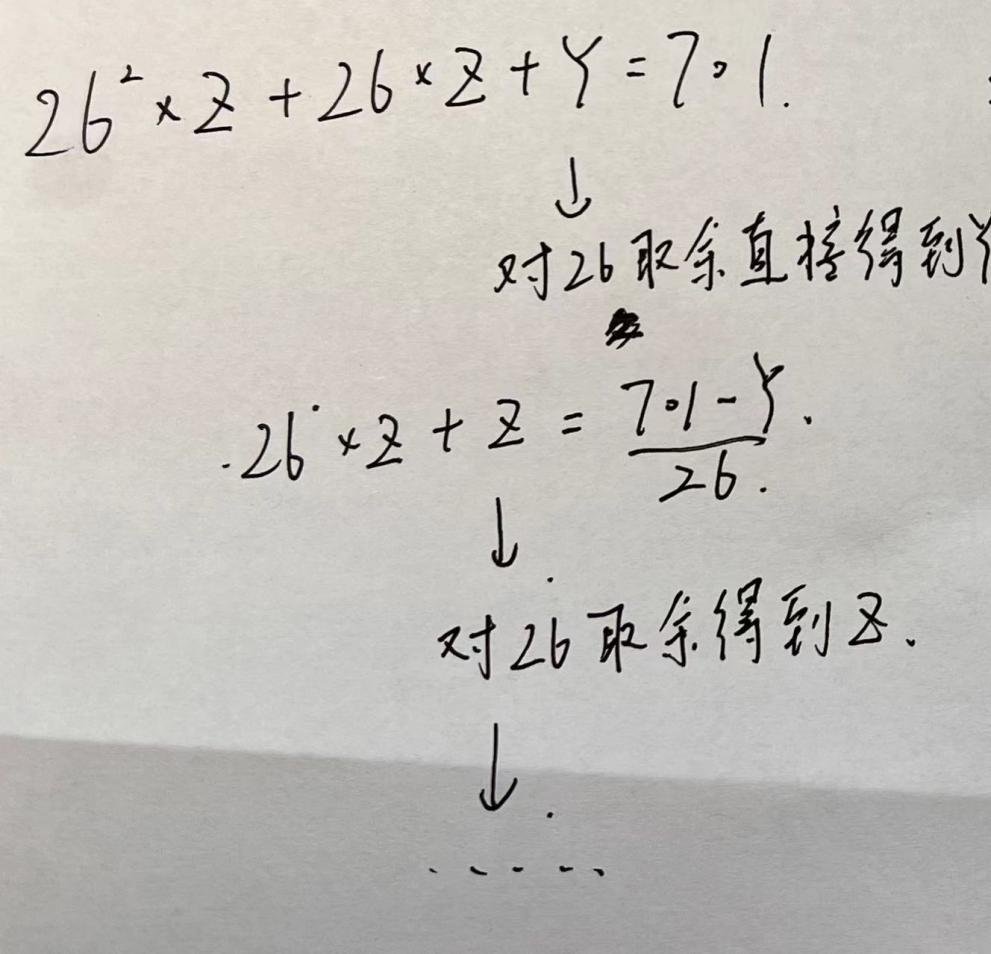 26² × Z + 26 × Z + Y = 701.
↓
对26取余直接得到Y
26 × Z + Z = (701 - Y) / 26.
↓
对26取余得到Z.
↓
.....